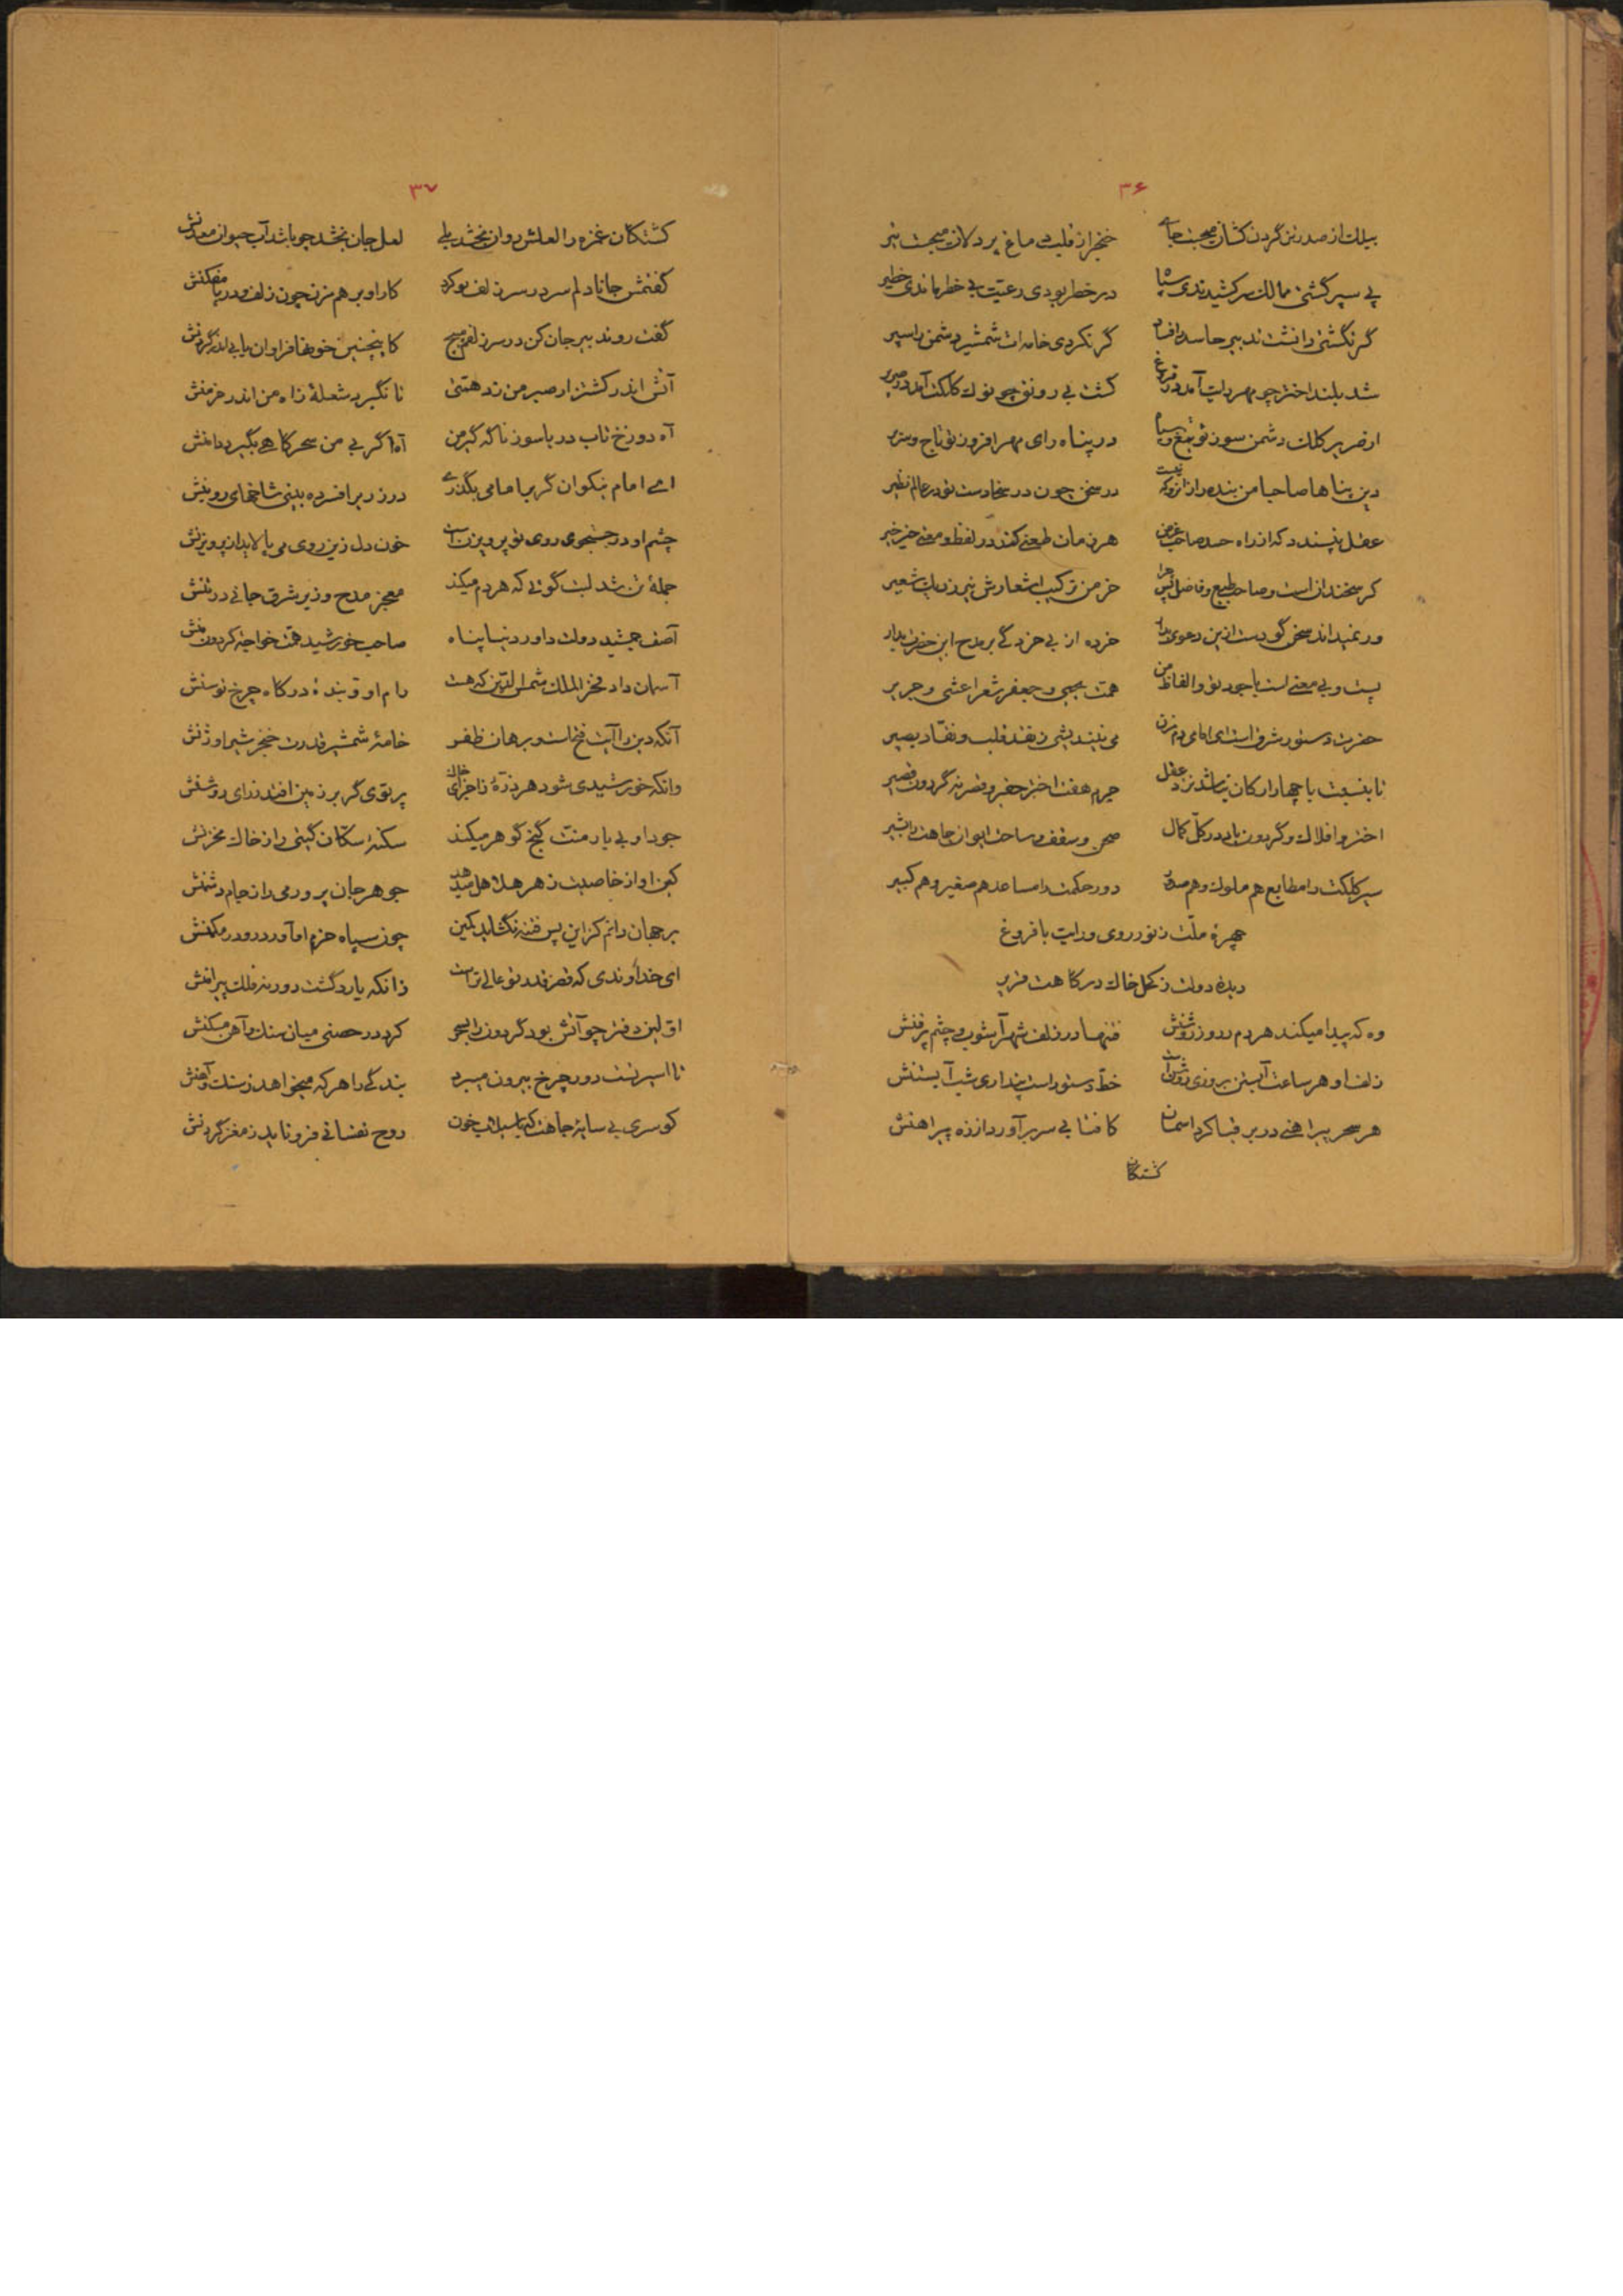 ۳۶
بیلک از صدر تن گردن کشان میجست جای خنجر از قلب و دماغ پردلان میجست تیر
بی سپر گشتی ممالک سرکشیدندی سپاه در خطر بودی رعیت بی خطر ماندی خطیر
گر نگشتی دانشت تدبیر حاسد را فساد گر نکردی خامه ات شمشیر دشمن را سپر
شد بلند اختر چو مهر رایت آمد در فروغ گشت بی رونق چو نوک کلکت آمد در صریر
از صریر کلک دشمن سوز تو تیغ و سپاه در پناه رای مهر افروز تو تاج و سریر
دین پناها صاحبا من بنده را زانرو که نیست در سخن چون در سخا دست تو در عالم نظیر
عقل نپسندد که از راه حسد صاحب غرض هر زمان طعنی کند در لفظ و معنی خیر خیر
گر سخندان است و صاحب طبع و فاضل پس چرا خرمن ترکیب اشعارش نیرزد یک شعیر
ور نمیداند سخن گو دست ازین دعوی بدار خرده از بی خردگی بر مدح این حضرت مگیر
پست و بی معنی است با جود تو و الفاظ من همت یحیی و جعفر شعر اعشی و جریر
حضرت دستور شرق است ای امامی دم مزن می نیندیشی ز نقد قلب و نقاد بصیر
تا بنسبت با چهار ارکان نباشد نزد عقل جرم هفت اختر حقیر و قصر نه گردون قصیر
اختر و افلاک و گردون باد در کل کمال صحن و سقف و ساحت ایوان جاهت را مشیر
سیر کلکت را مطایع هم ملوک و هم صدور دور حکمت را مساعد هم صغیر و هم کبیر
چهرهٔ ملت ز نور روی و رایت با فروغ
دیدهٔ دولت ز کحل خاک درگاهت قریر
وه که پیدا میکند هر دم ز روز روشنش فتنها در زلف شهرآشوب و چشم پر فنش
زلف او هر ساعت آبستن بروزی روشن است خط دستور است پنداری شب آبستنش
هر سحر پیراهنی در بر قبا کرد آسمان کافتابی سر برآورد از زه پیراهنش
کشتگان
۳۷
کشتگان غمزه را لعلش روان بخشد بلی لعل جان بخشد چو باشد آب حیوان معدنش
گفتمش جانا دلم سر در سر زلف تو کرد کار او بر هم مزن چون زلف و در پا مفکنش
گفت رو تدبیر جان کن در سر زلفم مپیچ کاینچنین خونها فراوان یابی اندر گردنش
آتش اندر کشتزار صبر من زد هستی تا نگیرد شعلهٔ زاه من اندر خرمنش
آه دوزخ تاب دریا سوز ناگه گیر من آه اگر بی من سحرگاهی بگیرد دامنش
ای امام نیکوان گر بر امامی بگذری در زریر افسرده بینی شاخهای روینش
چشم او در جستجوی روی تو پرویزن است خون دل زین روی می پالاید از پرویزنش
جملهٔ تن شد لبت گوئی که هر دم میکند معجز مدح وزیر شرق جانی در تنش
آصف جمشید دولت داور دنیا پناه صاحب خورشید همت خواجهٔ گردون منش
آسمان داد فخر الملک شمس الدین که هست رام او و بندهٔ درگاه چرخ توسنش
آنکه دین را آیت فتح است و برهان ظفر خامهٔ شمشیر قدرت خنجر شیر اوژنش
وانکه خورشیدی شود هر ذرهٔ ز اجزای خاک پرتوی گر بر زمین افتد ز رای روشنش
جود او بی بار منت گنج گوهر میکند سکنهٔ سکان گیتی را ز خاک مخزنش
کین او از خاصیت زهر هلاهل میدهد جوهر جان پرور می را ز جام دشمنش
بر جهان دانم کزین پس فتنه نگشاید کمین چون سپاه حزم او آورد رو در مکمنش
ای خداوندی که قصر قدر تو عالی تر است زانکه یارد گشت دور نه فلک پیرامنش
اولین دفتر چو آتش بود گردون را بسحر کرد در حصنی میان سنگ و آهن مسکنش
تا اسیر تست دور چرخ بیرون میبرد بندگی را هر که میخواهد ز سنگ و آهنش
کو سری بی سایهٔ جاهت که با سیلاب خون روح نفسانی فرو ناید ز مغز گردنش